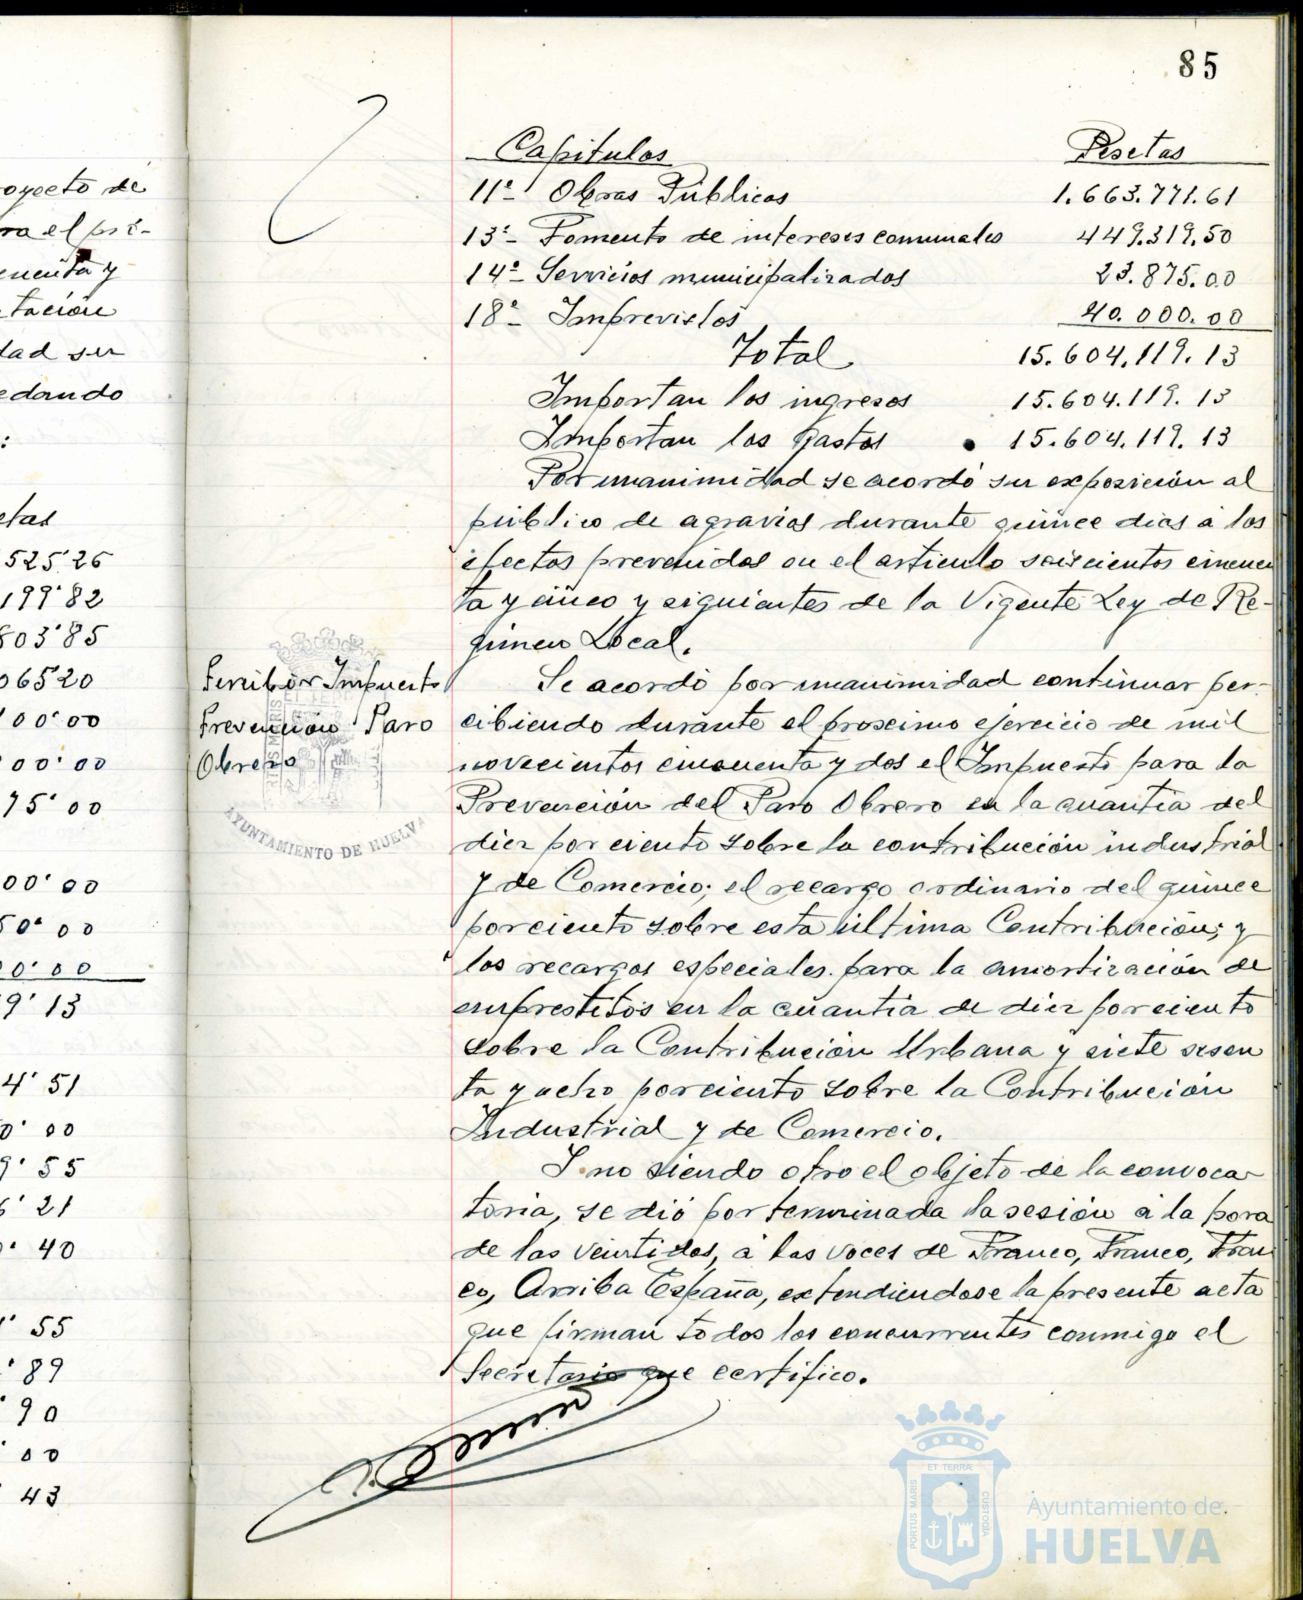 85
oyecto de
ra el pre-
cuenta y
tación
dad su
edando
:
etas
525'26
199'82
803'85
06520
00'00
00'00
75'00
00'00
50'00
00'00
9'13
4'51
0'00
9'55
6'21
0'40
1'55
'89
'90
'00
43
Capitulos Pesetas
11º- Obras Públicas 1.663.771.61
13º- Fomento de intereses comunales 449.319,50
14º- Servicios municipalizados 23.875.00
18º- Imprevistos 40.000.00
Total 15.604.119.13
Importan los ingresos 15.604.119.13
Importan los gastos 15.604.119.13
Por unanimidad se acordó su exposición al
público de agravios durante quince dias á los
efectos prevenidos en el articulo seiscientos cincuen
ta y cinco y siguientes de la Vigente Ley de Ré-
gimen Local.
Percibir Impuesto
Prevención Paro
Obrero
AYUNTAMIENTO DE HUELVA
Se acordó por unanimidad continuar per-
cibiendo durante el proximo ejercicio de mil
novecientos cincuenta y dos el Impuesto para la
Prevención del Paro Obrero en la cuantia del
diez por ciento sobre la contribución industrial
y de Comercio; el recargo ordinario del quince
porciento sobre esta última Contribución; y
los recargos especiales para la amortización de
emprestitos en la cuantia de diez por ciento
sobre la Contribución Urbana y siete sesen
ta y ocho porciento sobre la Contribución
Industrial y de Comercio.
I no siendo otro el objeto de la convoca-
toria, se dió por terminada la sesión á la hora
de las veintidos, á las voces de Franco, Franco, Fran
co, Arriba España, extendiendose la presente acta
que firman todos los concurrentes conmigo el
Secretario que certifico.
ET TERRÆ
PORTUS MARIS
CUSTODIA
Ayuntamiento de
HUELVA